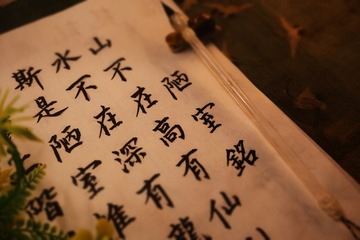 陋室銘
山不在高有仙
水不在深有龍
斯是陋室惟
階